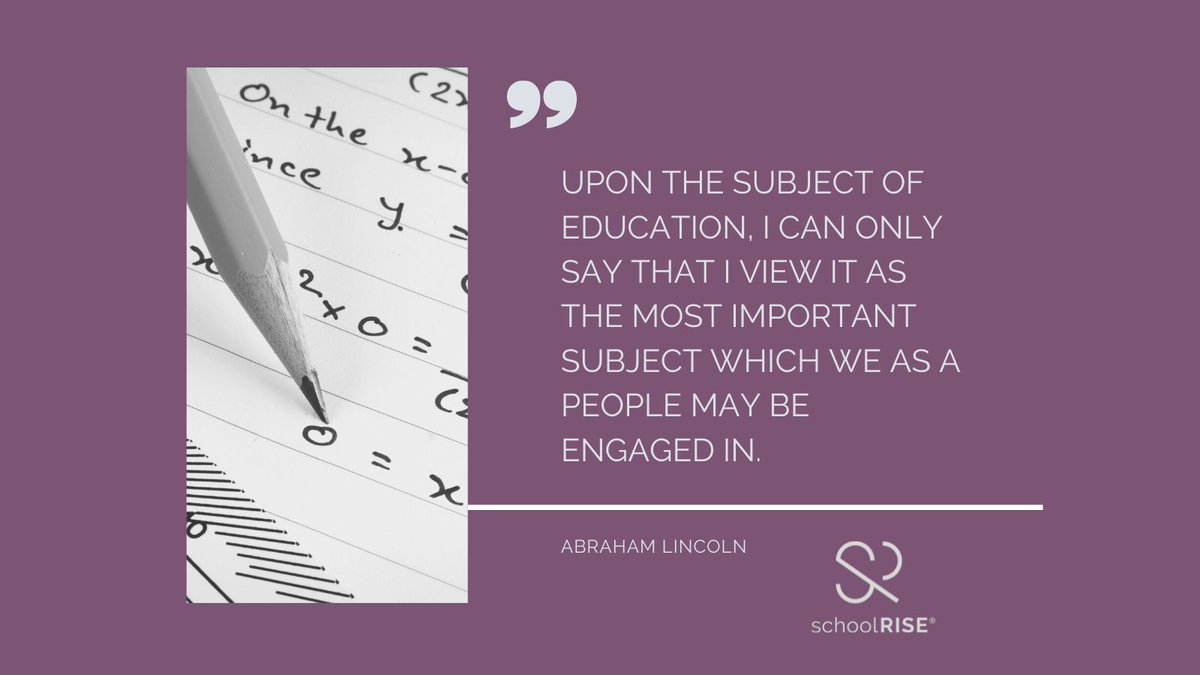 On the x-
ince y =
2 x 0 =
0 = x
”
UPON THE SUBJECT OF
EDUCATION, I CAN ONLY
SAY THAT I VIEW IT AS
THE MOST IMPORTANT
SUBJECT WHICH WE AS A
PEOPLE MAY BE
ENGAGED IN.
ABRAHAM LINCOLN
schoolRISE®